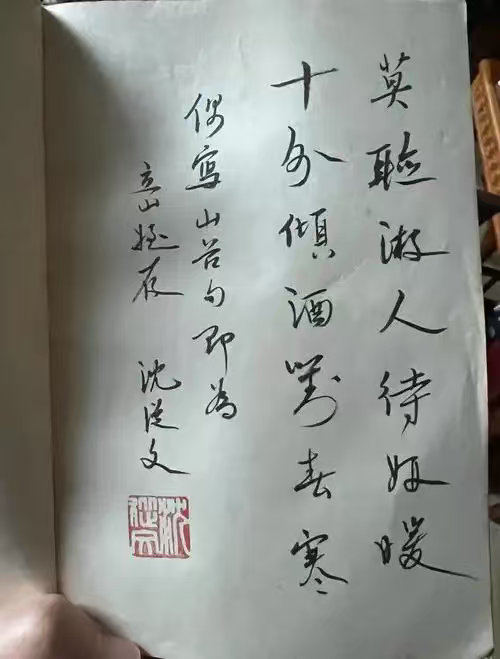 莫聽游人待妍暖
十分傾酒對春寒
偶寫山谷句即為
山姪存 沈從文
沈從文